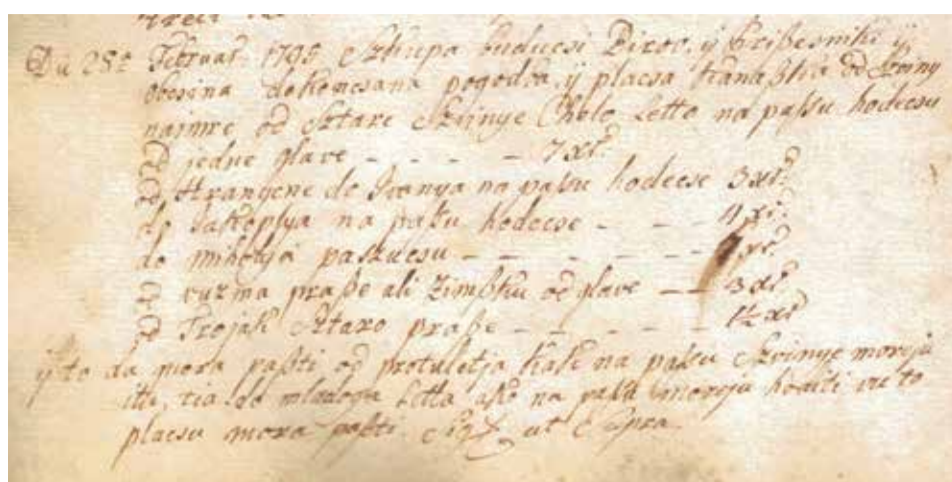 Die 28ª Februar: 1795 Szkupa buducsi Birov, ÿ Krisesniki ÿ
obcsina dokoncsana pogodba, ÿ placsa kanaßka od Szviny
naimre od Sztare Szvinye Chelo Letto na paßu hodecsu
od jedne glave - - - - - 7 xr.
od Hranyene do Ivanya na paßu hodecse 3 xr.
do Jakoplya na paßu hodecse - - - 4 xr.
do miholja paszucsu - - - - - - - xr.
od vuzma praße ali zimßku od glave - - 3 xr
od Trojak Sztaro praße - - - - - - 1½ xr
ÿ to da mora paßti od protuletja kak na paßu Szvinye moreju
itti, tia do mladoga Letta ako na paßu moreju hoditi vu to
placsu mora paßti. Sig: ut Supra.